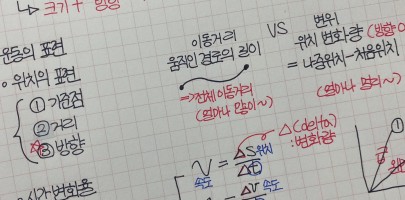 ↳ 크기 + 방향
운동의 표현
• 위치의 표현
① 기준점
② 거리
③ 방향
이동거리
움직인 경로의 길이
⇒ 전체 이동거리
(얼마나 많이~)
VS
변위
위치 변화량 (방향 O
= 나중위치-처음위치
(얼마나 멀리~)
시간변화율
V = ΔS 위치
속도 Δt
Δ(delta)
: 변화량
ΔV 속도
①